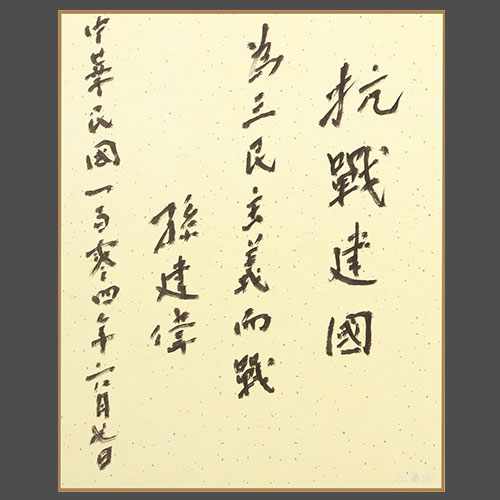 抗戰建國
為三民主義而戰
孫建偉
中華民國一百零四年六月七日